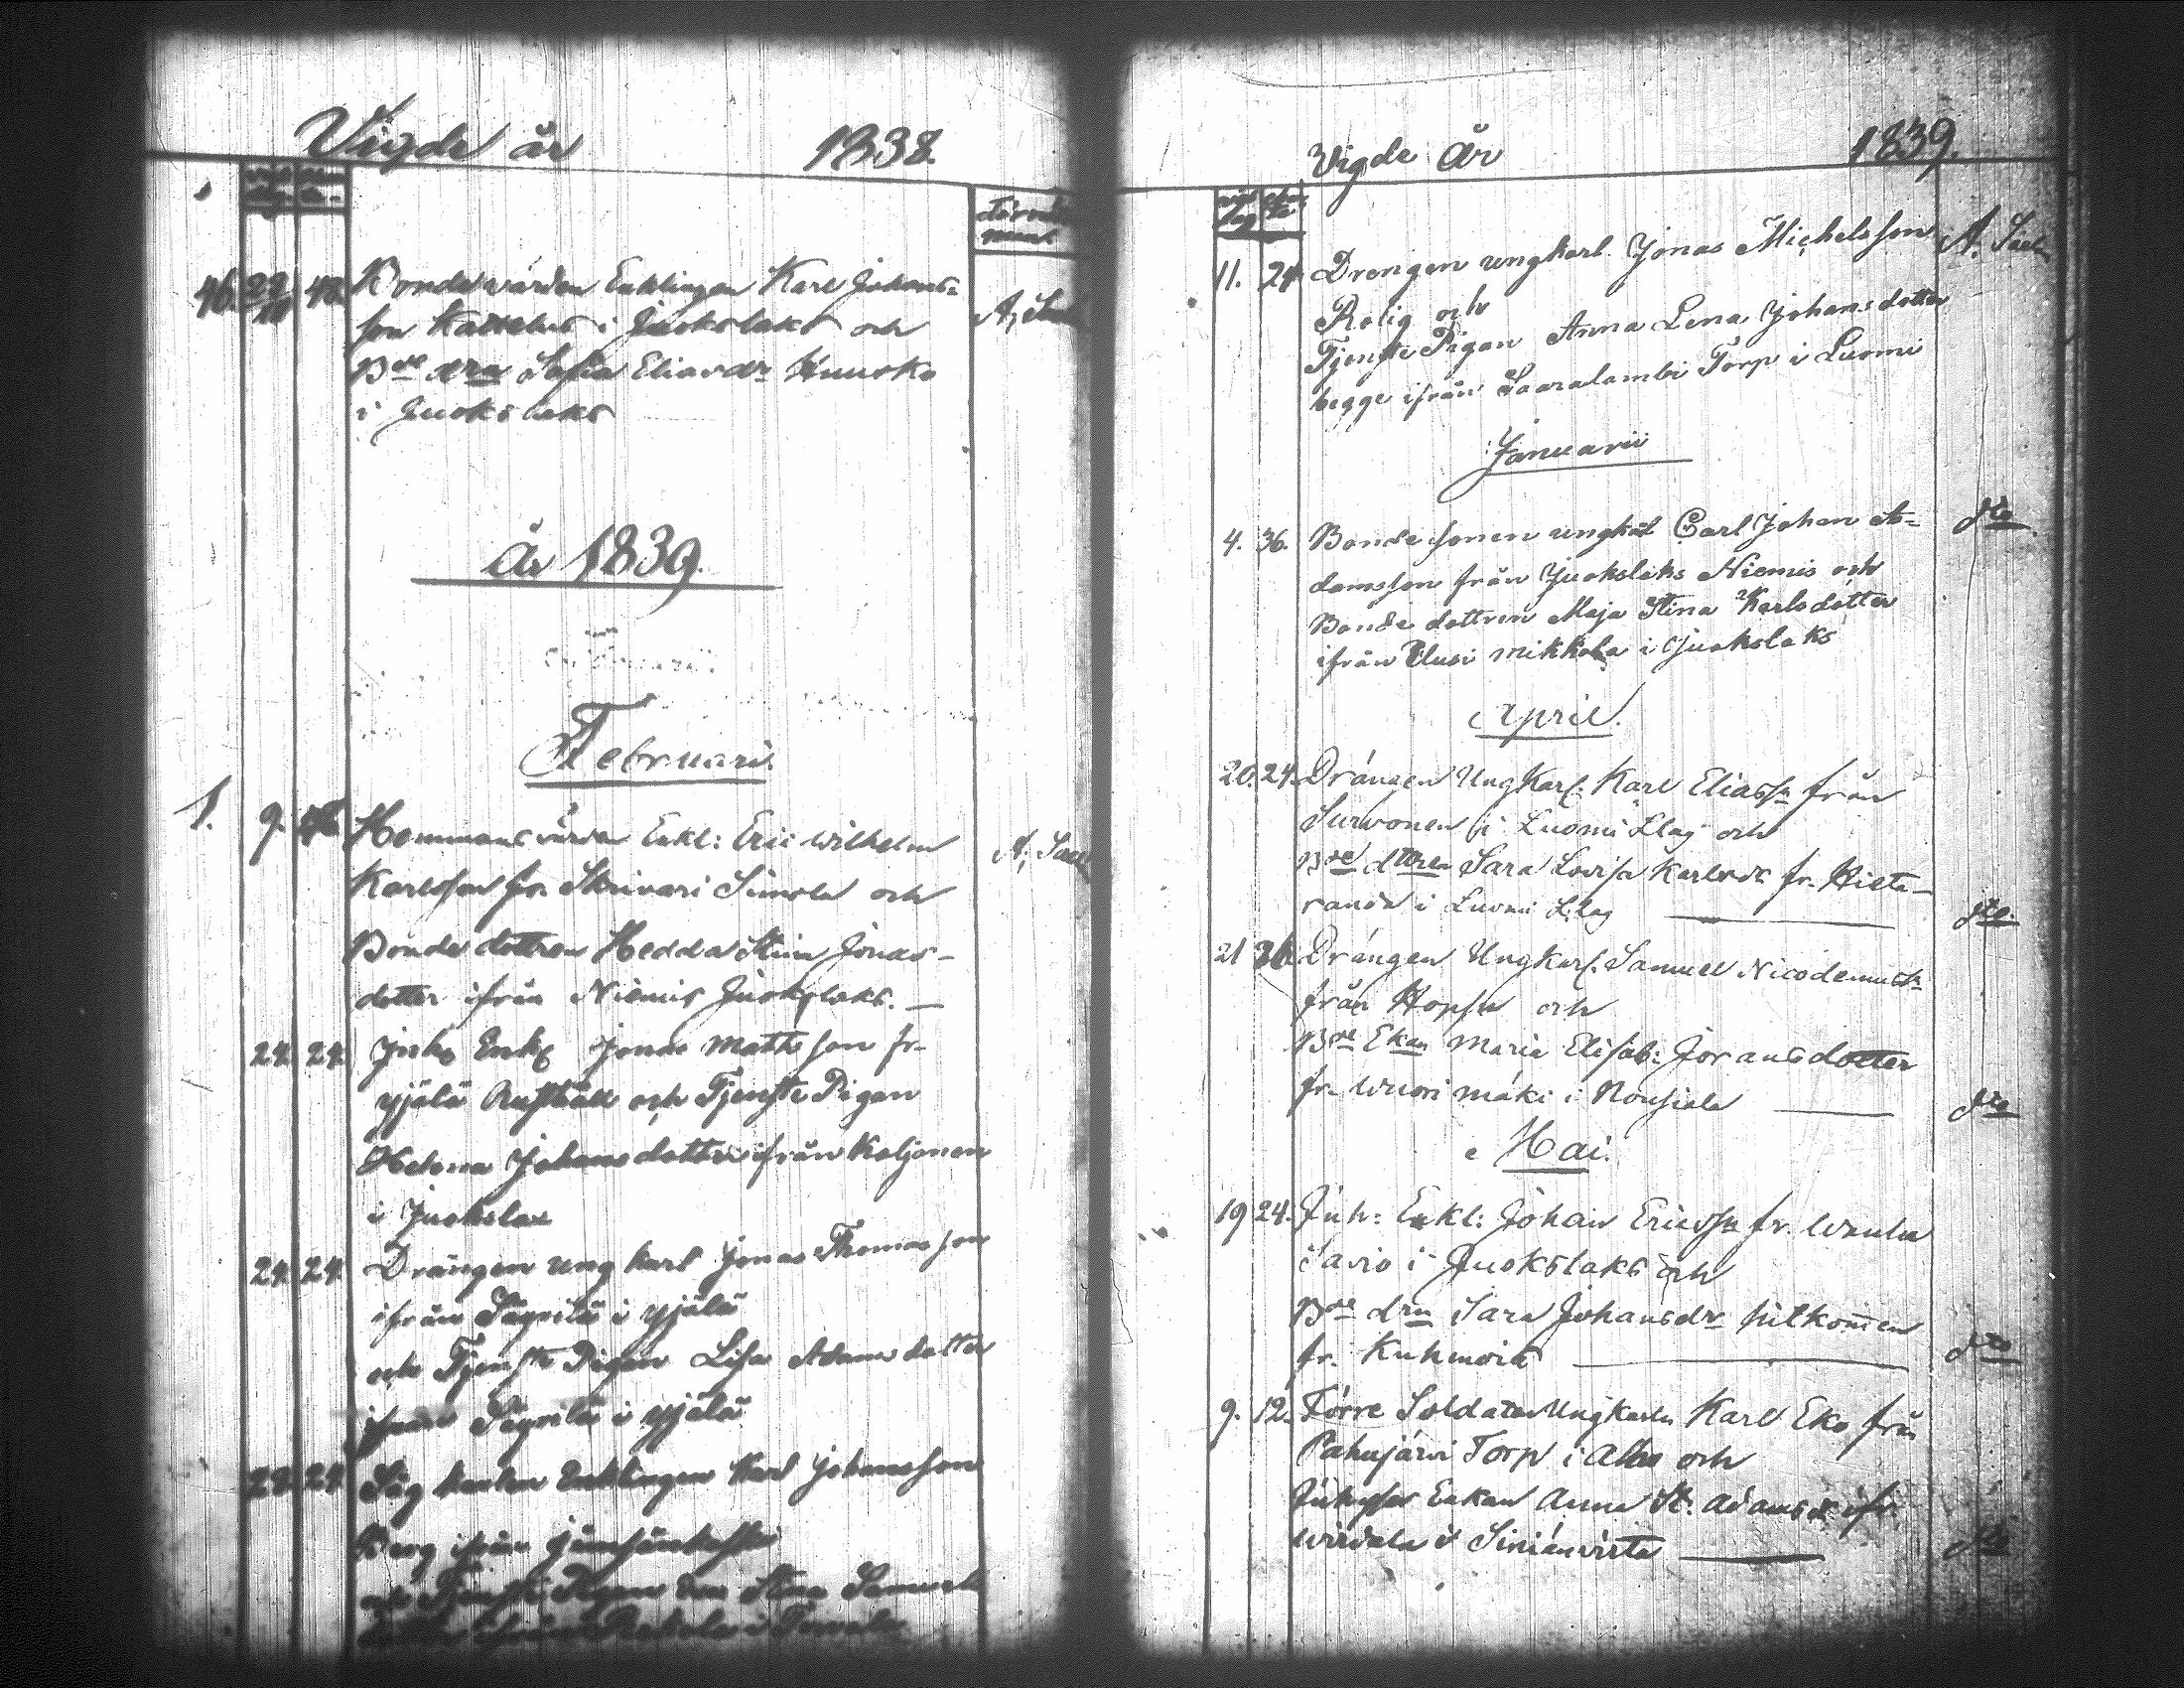 Vigde år 1838.
46. 22 48. Bondevärden Enklingen Karl Johans-
son Kattelus i Juokslaks och
Bde dra Sofia Eliasdr Huusko
i Juokslaks
År 1839.
Februari.
1. 9. Hemmansvärden Enkl: Eric Wilhelm A, Sael
Karlsson fr. Skrivari Simola och
Bonde dottren Hedda Stina Jonas-
dotter ifrån Niemis Juokslaks. —
24. 24. Inh. Enkl Jonas Mattsson fr.
Yjälä Rusthåll och Tjenste Pigan
Helena Johansdotter ifrån Koljonen
i Juokslax
24. 24. Drängen ungkarl Jonas Thomasson
ifrån Päyrilä i Yjälä
och Tjenste Pigan Lisa Adamsdotter
ifrån Päyrilä i Yjälä
24. Såg karlen Enklingen Karl Johansson
Berg ifrån
och Tjenste Pigan Stina Samuels
ifrån
Vigde År 1839.
11. 24 Drengen ungkarl. Jonas Michelsson A. Sael
Rolig och
Tjenste Pigan Anna Lena Johansdotter
begge ifrån Saaralambi Torp i Luomi
Januarii
4. 36. Bondesonen ungkal Carl Johan A- dto
damsson från Juokslaks Niemis och
Bonde dottren Maja Stina Karlsdotter
ifrån Uusi mikkola i Juokslaks
April.
20. 24. Drängen Ungkarl. Karl Eliass. från
Survonen i Luomi Llag och
Bde dttren Sara Lovisa Karlsdr fr. Hieta-
randa i Luomi L.lag — dto.
21 36. Drängen Ungkarl. Samuel Nicodemuss.
från Hopsu och
Bde Ekan Maria Elisab: Joransdotter
fr. Wuorimäki i Rousiala — dto
Mai.
19 24. Inh: Enkl: Johan Ericss. fr. Wanha
Savio i Juokslaks och
Bde drn Sara Johansdr hitkommen
fr. Kuhmois — dto
9. 12. Förre Soldaten Ungkarln Karl Eko från
Pahajärvi Torp i Alho och
Inhyses Enkan Anna St. Adamsdr ifr.
Wirdala i Siniänvirta — dto